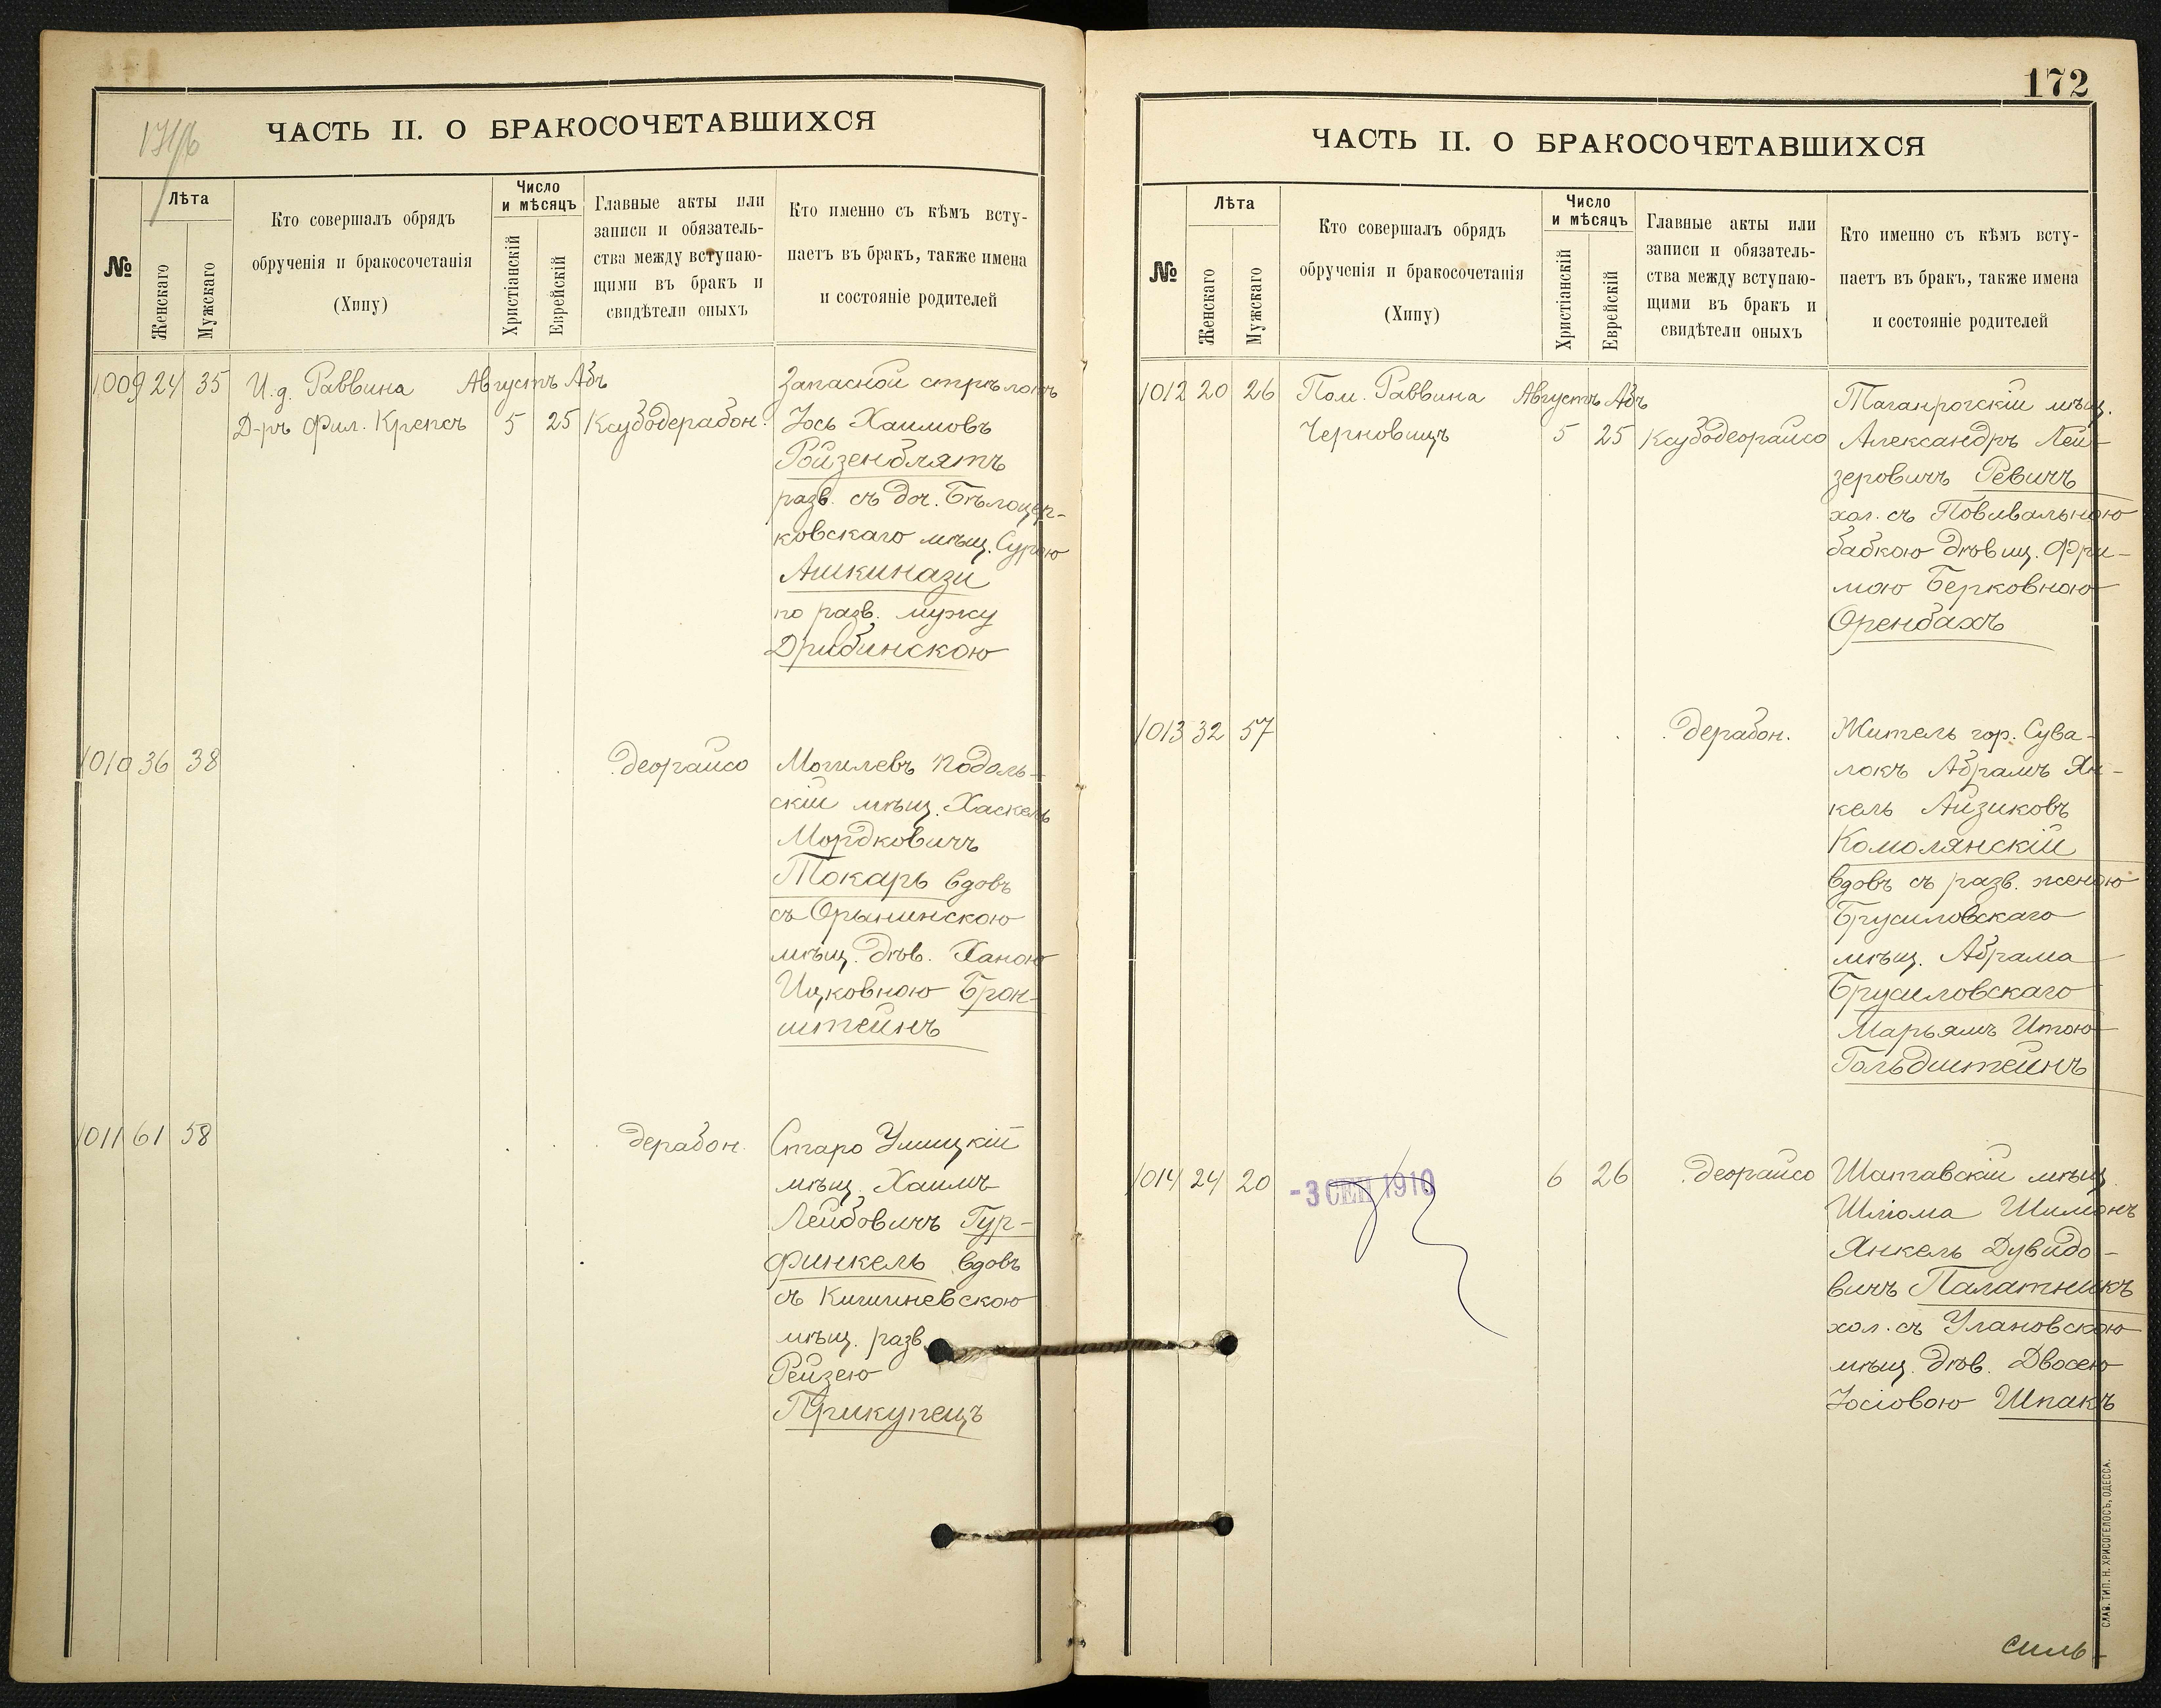 ЧАСТЬ II. О БРАКОСОЧЕТАВШИХСЯ
№
Лѣта
Женскаго
Мужскаго
Кто совершалъ обрядъ
обрученія и бракосочетанія
(Хипу)
Число
и мѣсяцъ
Христіанскій
Еврейскій
Главные акты или
записи и обязатель-
ства между вступаю-
щими въ бракъ и
свидѣтели оныхъ
Кто именно съ кѣмъ всту-
паетъ въ бракъ, также имена
и состояніе родителей
1009 24 35 И.д. Раввина Августъ Абъ Запасной стрѣлокъ
Д-ръ Фил. Крепсъ 5 25 Ксубодерабон. Іось Хаимовъ
Ройзенблятъ
разв. съ доч. Бѣлоцер-
ковскаго мѣщ. Сурою
Ашкинази
по разв. мужу
Дрибинскою
1010 36 38 . . . . деорайсо Могилевъ Подоль-
скій мѣщ. Хаскель
Мордковичъ
Токарь вдовъ
съ Орынинскою
мѣщ. дѣв. Ханою
Ицковною Брон-
штейнъ
1011 61 58 . . . дерабон. Старо Ушицкій
мѣщ. Хаимъ
Лейбовичъ Гур-
финкель вдовъ
съ Кишиневскою
мѣщ. разв.
Рейзею
Прикупецъ
172
ЧАСТЬ II. О БРАКОСОЧЕТАВШИХСЯ
№
Лѣта
Женскаго
Мужскаго
Кто совершалъ обрядъ
обрученія и бракосочетанія
(Хипу)
Число
и мѣсяцъ
Христіанскій
Еврейскій
Главные акты или
записи и обязатель-
ства между вступаю-
щими въ бракъ и
свидѣтели оныхъ
Кто именно съ кѣмъ всту-
паетъ въ бракъ, также имена
и состояніе родителей
1012 20 26 Пом. Раввина Августъ Абъ Таганрогскій мѣщ.
Черновицъ 5 25 Ксубодеорайсо Александръ Лей-
зеровичъ Ревичъ
хол. съ Повивальною
бабкою дѣвиц. Фри-
мою Берковною
Оренбахъ
1013 32 57 . . . . дерабон. Житель гор. Сува-
локъ Абрамъ Ян-
кель Айзиковъ
Комолянскій
вдовъ съ разв. женою
Брусиловскаго
мѣщ. Абрама
Брусиловскаго
Марьямъ Итою
Гольдштейнъ
1014 24 20 -3 СЕН 1910 6 26 . деорайсо Шатавскій мѣщ.
Шліома Шимонъ
Янкель Дувидо-
вичъ Палатникъ
хол. съ Улановскою
мѣщ. дѣв. Двосею
Іосіовою Шпакъ
СЛАВ. ТИП. Н. ХРИСОГЕЛОСЪ, ОДЕССА.
силь-